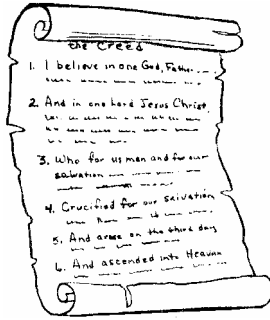 the Creed
1. I believe in one God, Father
2. And in one Lord Jesus Christ,
3. Who for us men and for our
salvation
4. Crucified for our salvation
5. And arose on the third day
6. And ascended into Heaven